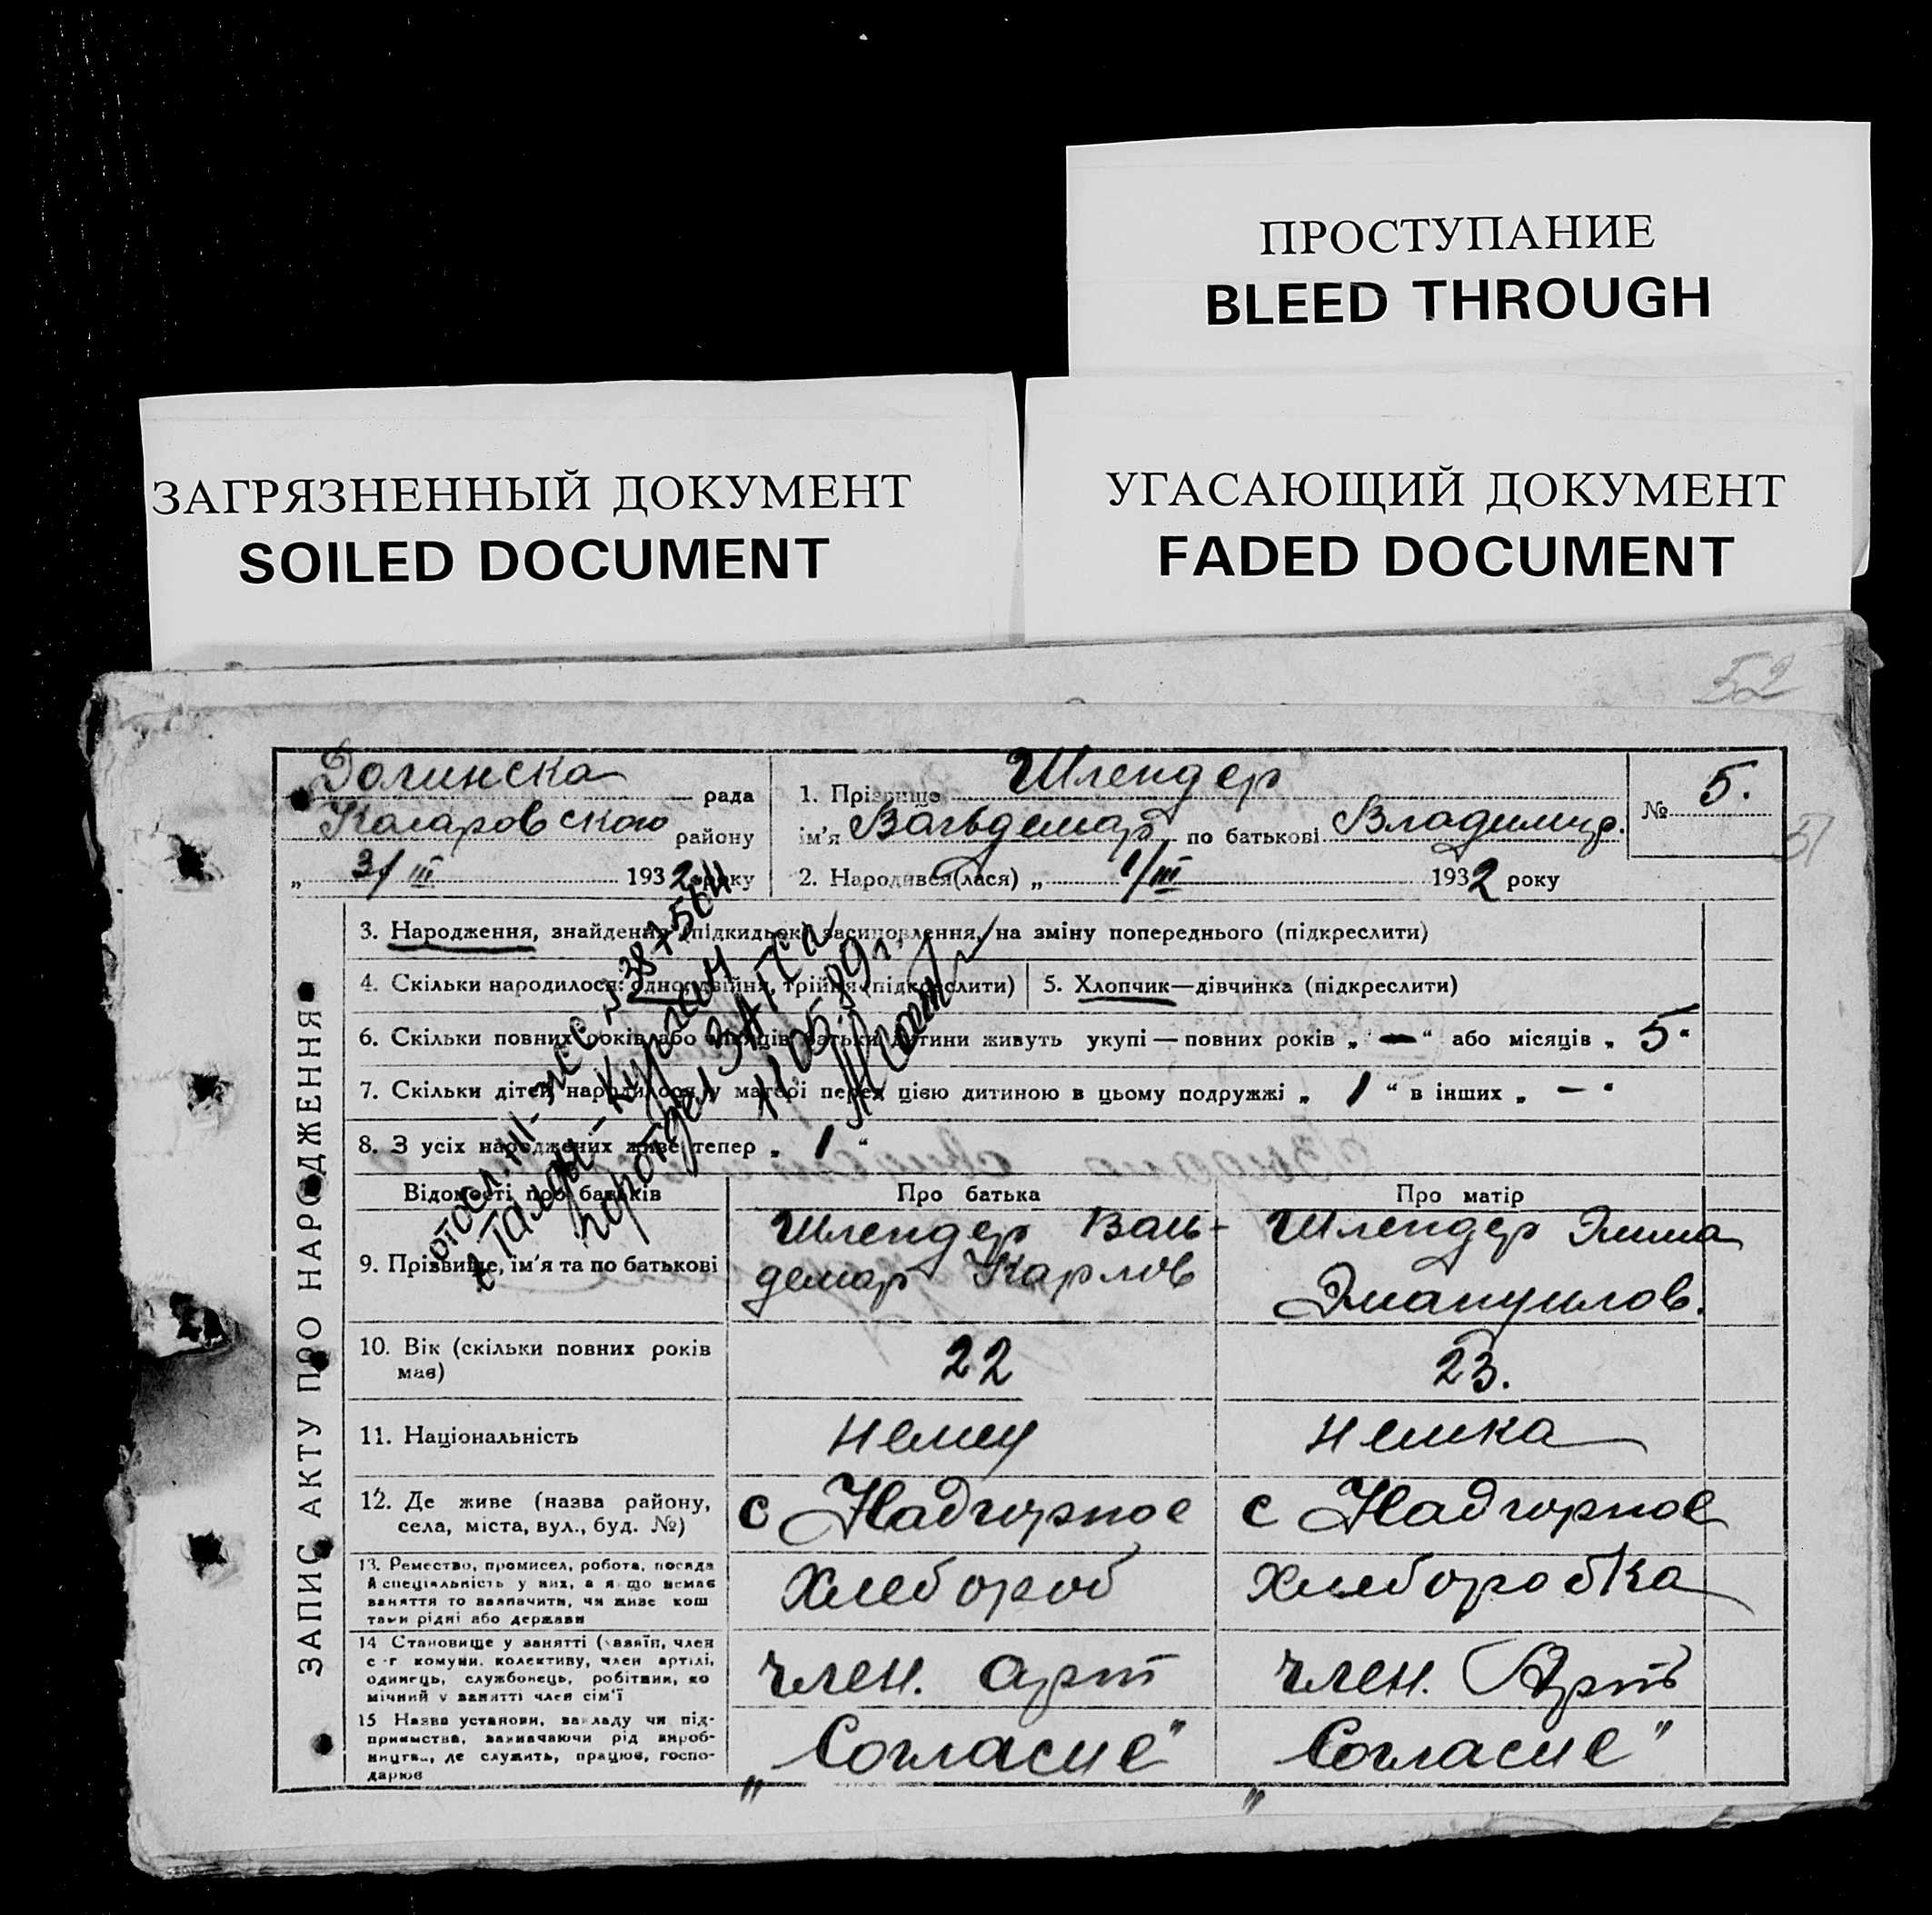 ПРОСТУПАНИЕ
BLEED THROUGH
ЗАГРЯЗНЕННЫЙ ДОКУМЕНТ
SOILED DOCUMENT
УГАСАЮЩИЙ ДОКУМЕНТ
FADED DOCUMENT
52
51
ЗАПИС АКТУ ПРО НАРОДЖЕННЯ
Долинска рада
Коларовского району
„ 3/III 1932 року
1. Прізвище Шлендер
ім'я Вальдемар по батькові Владимир.
№ 5.
2. Народився(лася) „ 1/III 1932 року
3. Народження, знайдення, підкидьок, засиновлення, на зміну попереднього (підкреслити)
4. Скільки народилося: одно, двійня, трійня (підкреслити)
5. Хлопчик—дівчинка (підкреслити)
6. Скільки повних років або місяців батьки дитини живуть укупі — повних років „ — “ або місяців „ 5 “
7. Скільки дітей народилося у матері перед цією дитиною в цьому подружжі „ 1 “ в інших „ — “
8. З усіх народжених живе тепер „ 1 “
Відомості про батьків
Про батька
Про матір
9. Прізвище, ім'я та по батькові
Шлендер Валь-
демар Карлов
Шлендер Эмма
Эмануилов.
10. Вік (скільки повних років
має)
22
23.
11. Національність
немец
немка
12. Де живе (назва району,
села, міста, вул., буд. №)
с Надгорное
с Надгорное
13. Ремество, промисел, робота, посада
й спеціяльність у них, а якщо немає
заняття то зазначити, чи живе кош
тами рідні або держави
Хлебороб
Хлеборобка
14 Становище у занятті (хазяїн, член
с-г комуни, колективу, член артілі,
одинець, службовець, робітник,
мічний у занятті член сім'ї
член. арт
член. Арт
15 Назва установи, закладу чи під-
приємства, зазначаючи рід вироб-
ництва, де служить, працює, госпо-
дарює
„Согласие“
„Согласие“
г Талды-Курган
горотдел ЗАГСа
11.05.89г.